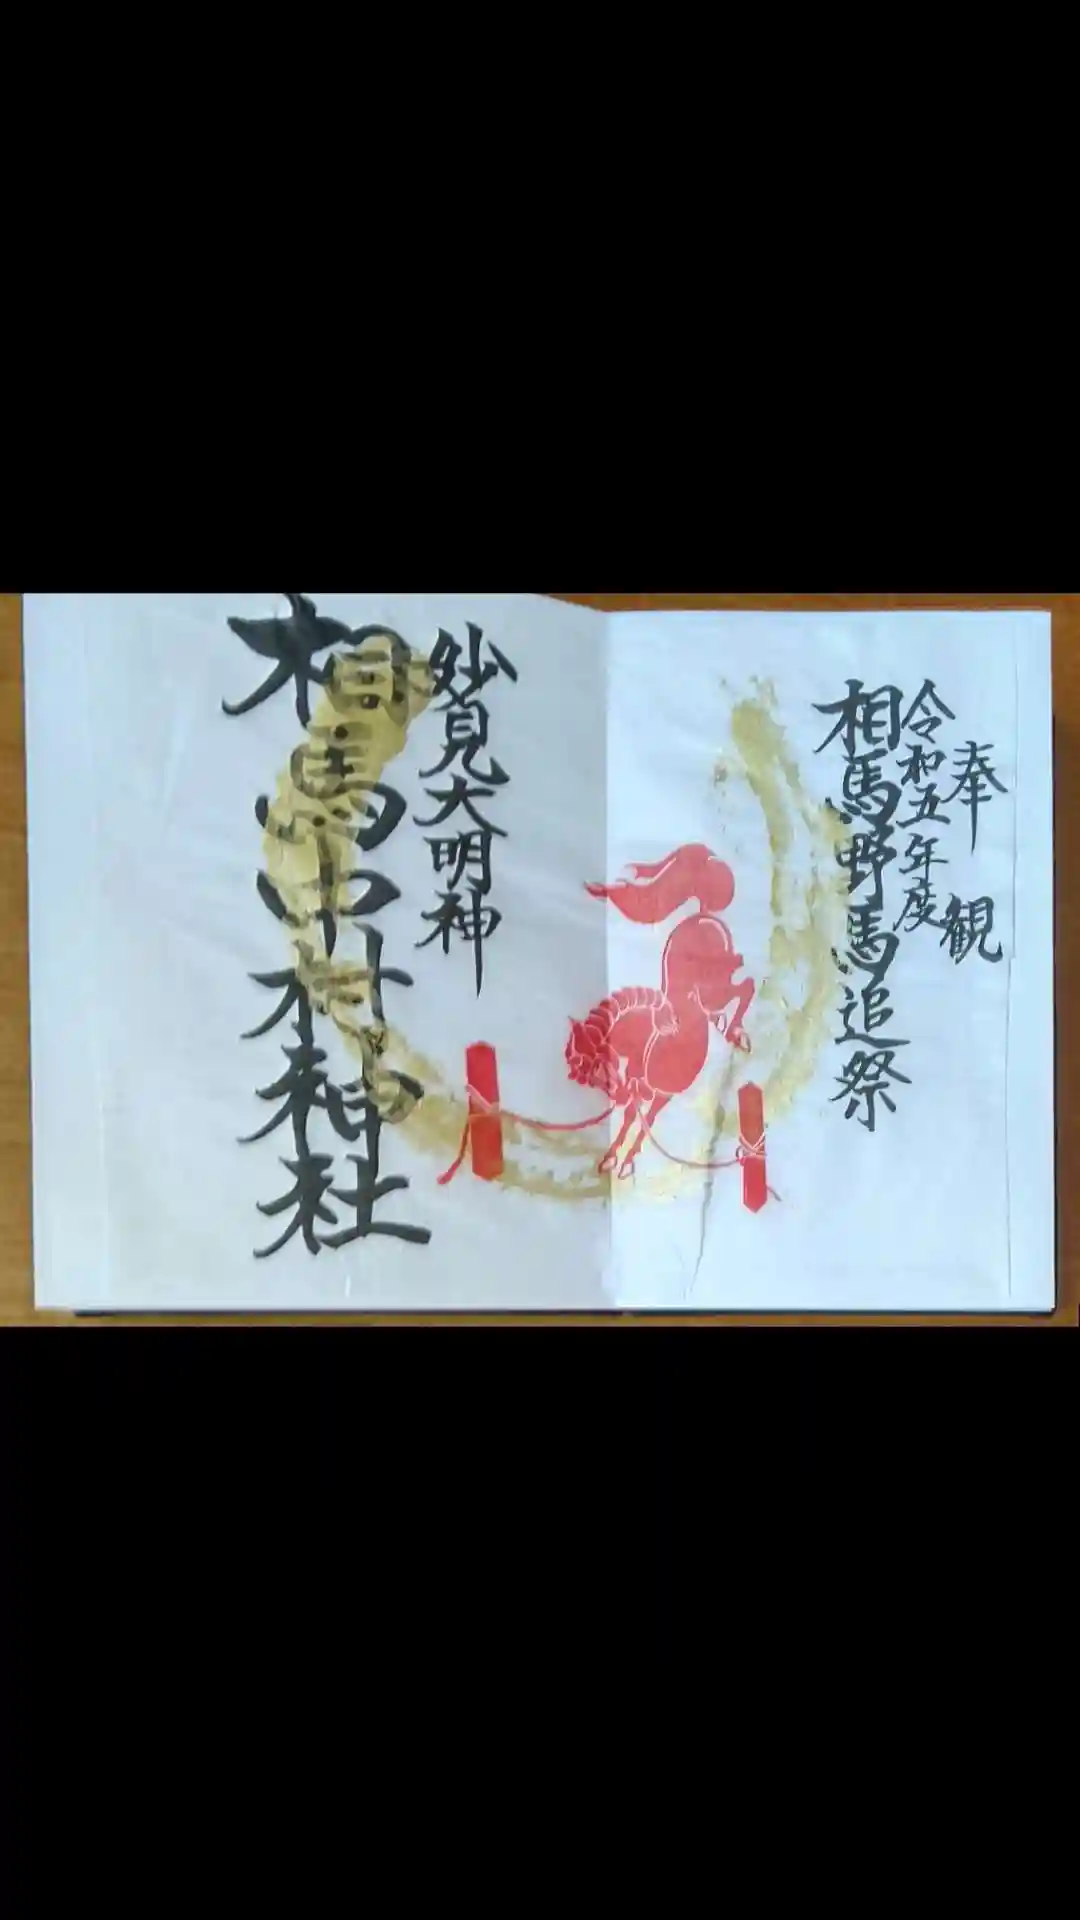 奉観
令和五年度
相馬野馬追祭
妙見大明神
相馬中村神社